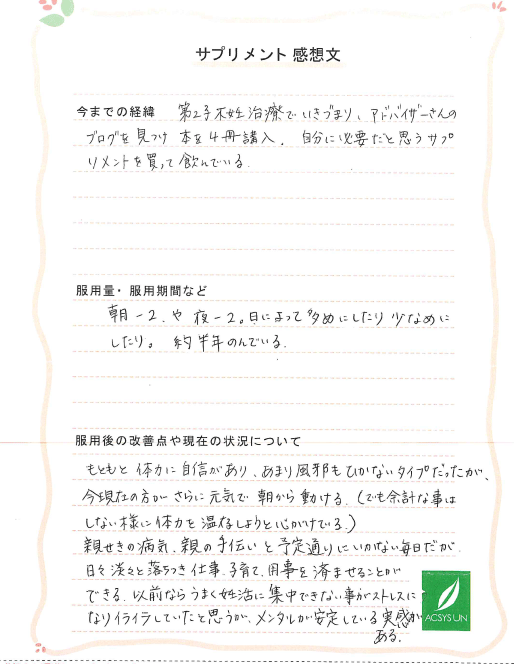 サプリメント 感想文
今までの経緯 第2子不妊治療でいきづまり、アドバイザーさんの
ブログを見つけ 本を4冊購入。自分に必要だと思うサプ
リメントを買って飲んでいる。
服用量・服用期間など
朝-2.や 夜-2。日によって多めにしたり少なめに
したり。 約半年のんでいる。
服用後の改善点や現在の状況について
もともと体力に自信があり、あまり風邪もひかないタイプだったが、
今現在の方がさらに元気で朝から動ける。(でも余計な事は
しない様に体力を温存しようと心がけている。)
親せきの病気、親の手伝いと予定通りにいかない毎日だが
日々淡々と落ちつき仕事、子育て、用事を済ませることが
できる。以前ならうまく妊活に集中できない事がストレスに
なりイライラしていたと思うが、メンタルが安定している実感が
ある。
ACSYSUN